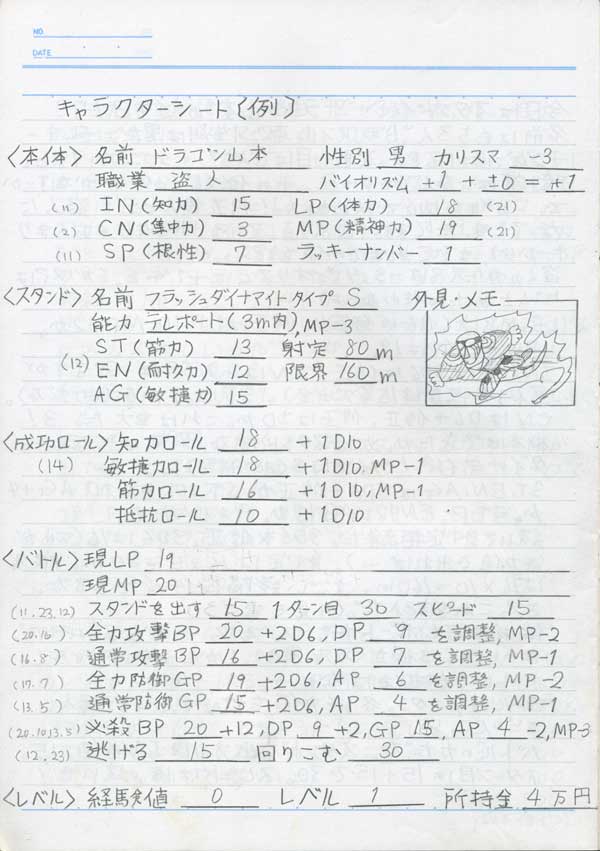 NO.
DATE
キャラクターシート〔例〕
〈本体〉 名前 ドラゴン山本 性別 男 カリスマ -3
職業 盗人 バイオリズム +1 + ±0 = +1
(11) IN(知力) 15 LP(体力) 18 (21)
(2) CN(集中力) 3 MP(精神力) 19 (21)
(11) SP(根性) 7 ラッキーナンバー 1
〈スタンド〉 名前 フラッシュダイナマイト タイプ S 外見・メモ
能力 テレポート(3m内), MP-3
ST(筋力) 13 射定 80 m
(12) EN(耐久力) 12 限界 160 m
AG(敏捷力) 15
〈成功ロール〉 知力ロール 18 +1D10
(14) 敏捷力ロール 18 +1D10, MP-1
筋力ロール 16 +1D10, MP-1
抵抗ロール 10 +1D10
〈バトル〉 現LP 19
現MP 20
(11.23.12) スタンドを出す 15 1ターン目 30 スピード 15
(20.16) 全力攻撃BP 20 +2D6, DP 9 を調整, MP-2
(16.8) 通常攻撃BP 16 +2D6, DP 7 を調整, MP-1
(17.7) 全力防御GP 19 +2D6, AP 6 を調整, MP-2
(13.5) 通常防御GP 15 +2D6, AP 4 を調整, MP-1
(20.10.13.5) 必殺BP 20 +12, DP 9 +2, GP 15, AP 4 -2, MP-3
(12.23) 逃げる 15 回りこむ 30
〈レベル〉 経験値 0 レベル 1 所持金 4万円